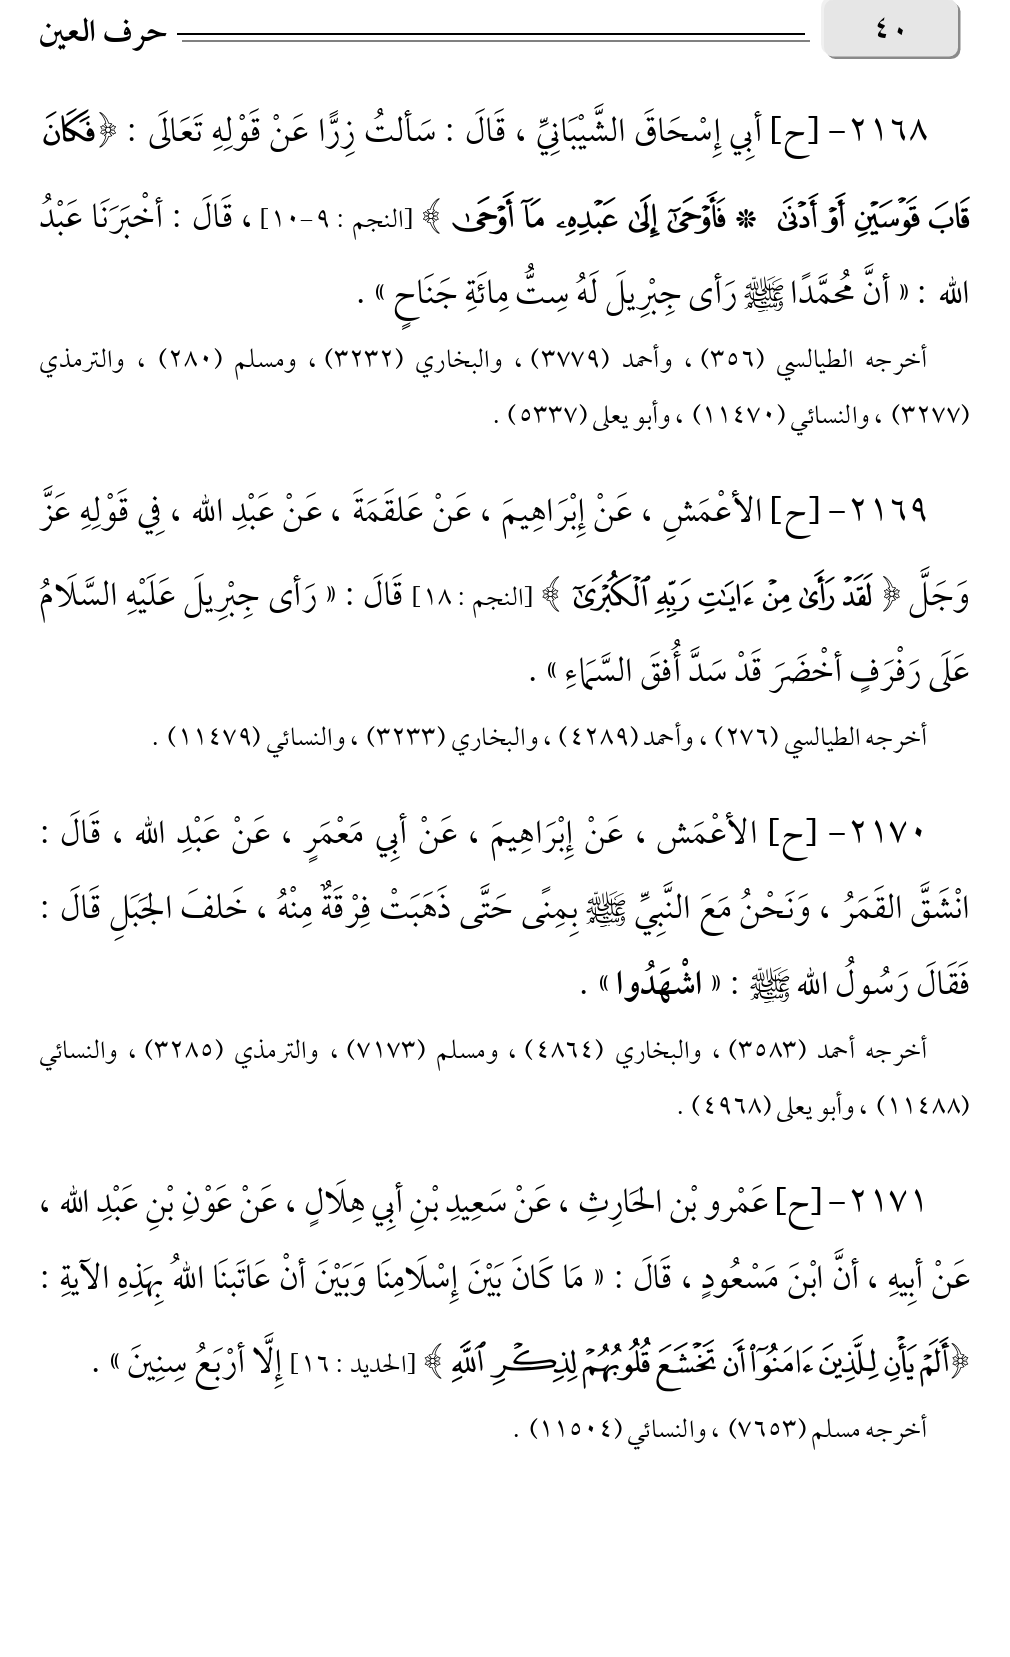 ٤٠
حرف العين
٢١٦٨- [ح] أبِي إِسْحَاقَ الشَّيْبَانِيِّ ، قَالَ : سَألتُ زِرًّا عَنْ قَوْلِهِ تَعَالَى : ﴿فَكَانَ
قَابَ قَوْسَيْنِ أَوْ أَدْنَىٰ ۞ فَأَوْحَىٰٓ إِلَىٰ عَبْدِهِۦ مَآ أَوْحَىٰ ﴾ [النجم : ٩-١٠] ، قَالَ : أخْبَرَنَا عَبْدُ
الله : « أنَّ مُحمَّدًا ﷺ رَأى جِبْرِيلَ لَهُ سِتُّ مِائَةِ جَنَاحٍ » .
أخرجه الطيالسي (٣٥٦) ، وأحمد (٣٧٧٩) ، والبخاري (٣٢٣٢) ، ومسلم (٢٨٠) ، والترمذي
(٣٢٧٧) ، والنسائي (١١٤٧٠) ، وأبو يعلى (٥٣٣٧) .
٢١٦٩- [ح] الأعْمَشِ ، عَنْ إِبْرَاهِيمَ ، عَنْ عَلقَمَةَ ، عَنْ عَبْدِ الله ، فِي قَوْلِهِ عَزَّ
وَجَلَّ ﴿ لَقَدْ رَأَىٰ مِنْ ءَايَـٰتِ رَبِّهِ ٱلْكُبْرَىٰٓ ﴾ [النجم : ١٨] قَالَ : « رَأى جِبْرِيلَ عَلَيْهِ السَّلَامُ
عَلَى رَفْرَفٍ أخْضَرَ قَدْ سَدَّ أُفقَ السَّمَاءِ » .
أخرجه الطيالسي (٢٧٦) ، وأحمد (٤٢٨٩) ، والبخاري (٣٢٣٣) ، والنسائي (١١٤٧٩) .
٢١٧٠- [ح] الأعْمَش ، عَنْ إِبْرَاهِيمَ ، عَنْ أبِي مَعْمَرٍ ، عَنْ عَبْدِ الله ، قَالَ :
انْشَقَّ القَمَرُ ، وَنَحْنُ مَعَ النَّبِيِّ ﷺ بِمِنًى حَتَّى ذَهَبَتْ فِرْقَةٌ مِنْهُ ، خَلفَ الجَبَلِ قَالَ :
فَقَالَ رَسُولُ الله ﷺ : « اشْهَدُوا » .
أخرجه أحمد (٣٥٨٣) ، والبخاري (٤٨٦٤) ، ومسلم (٧١٧٣) ، والترمذي (٣٢٨٥) ، والنسائي
(١١٤٨٨) ، وأبو يعلى (٤٩٦٨) .
٢١٧١- [ح] عَمْرو بْن الحَارِثِ ، عَنْ سَعِيدِ بْنِ أبِي هِلَالٍ ، عَنْ عَوْنِ بْنِ عَبْدِ الله ،
عَنْ أبِيهِ ، أنَّ ابْنَ مَسْعُودٍ ، قَالَ : « مَا كَانَ بَيْنَ إِسْلَامِنَا وَبَيْنَ أنْ عَاتَبنَا اللهُ بِهَذِهِ الآيةِ :
﴿أَلَمْ يَأْنِ لِلَّذِينَ ءَامَنُوٓا۟ أَن تَخْشَعَ قُلُوبُهُمْ لِذِكْرِ ٱللَّهِ ﴾ [الحديد : ١٦] إِلَّا أرْبَعُ سِنِينَ » .
أخرجه مسلم (٧٦٥٣) ، والنسائي (١١٥٠٤) .